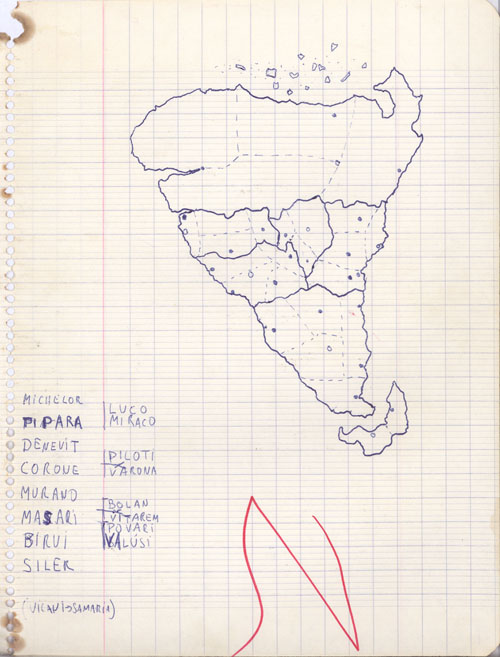 MICHELOR
PIPARA
DENEVIT
COROUE
MURAUD
MASARI
BIRUI
SILER
LUÇO
MIRACO
PILOTI
VARONA
BOLAN
VITAREM
POVARI
VALUSI
N